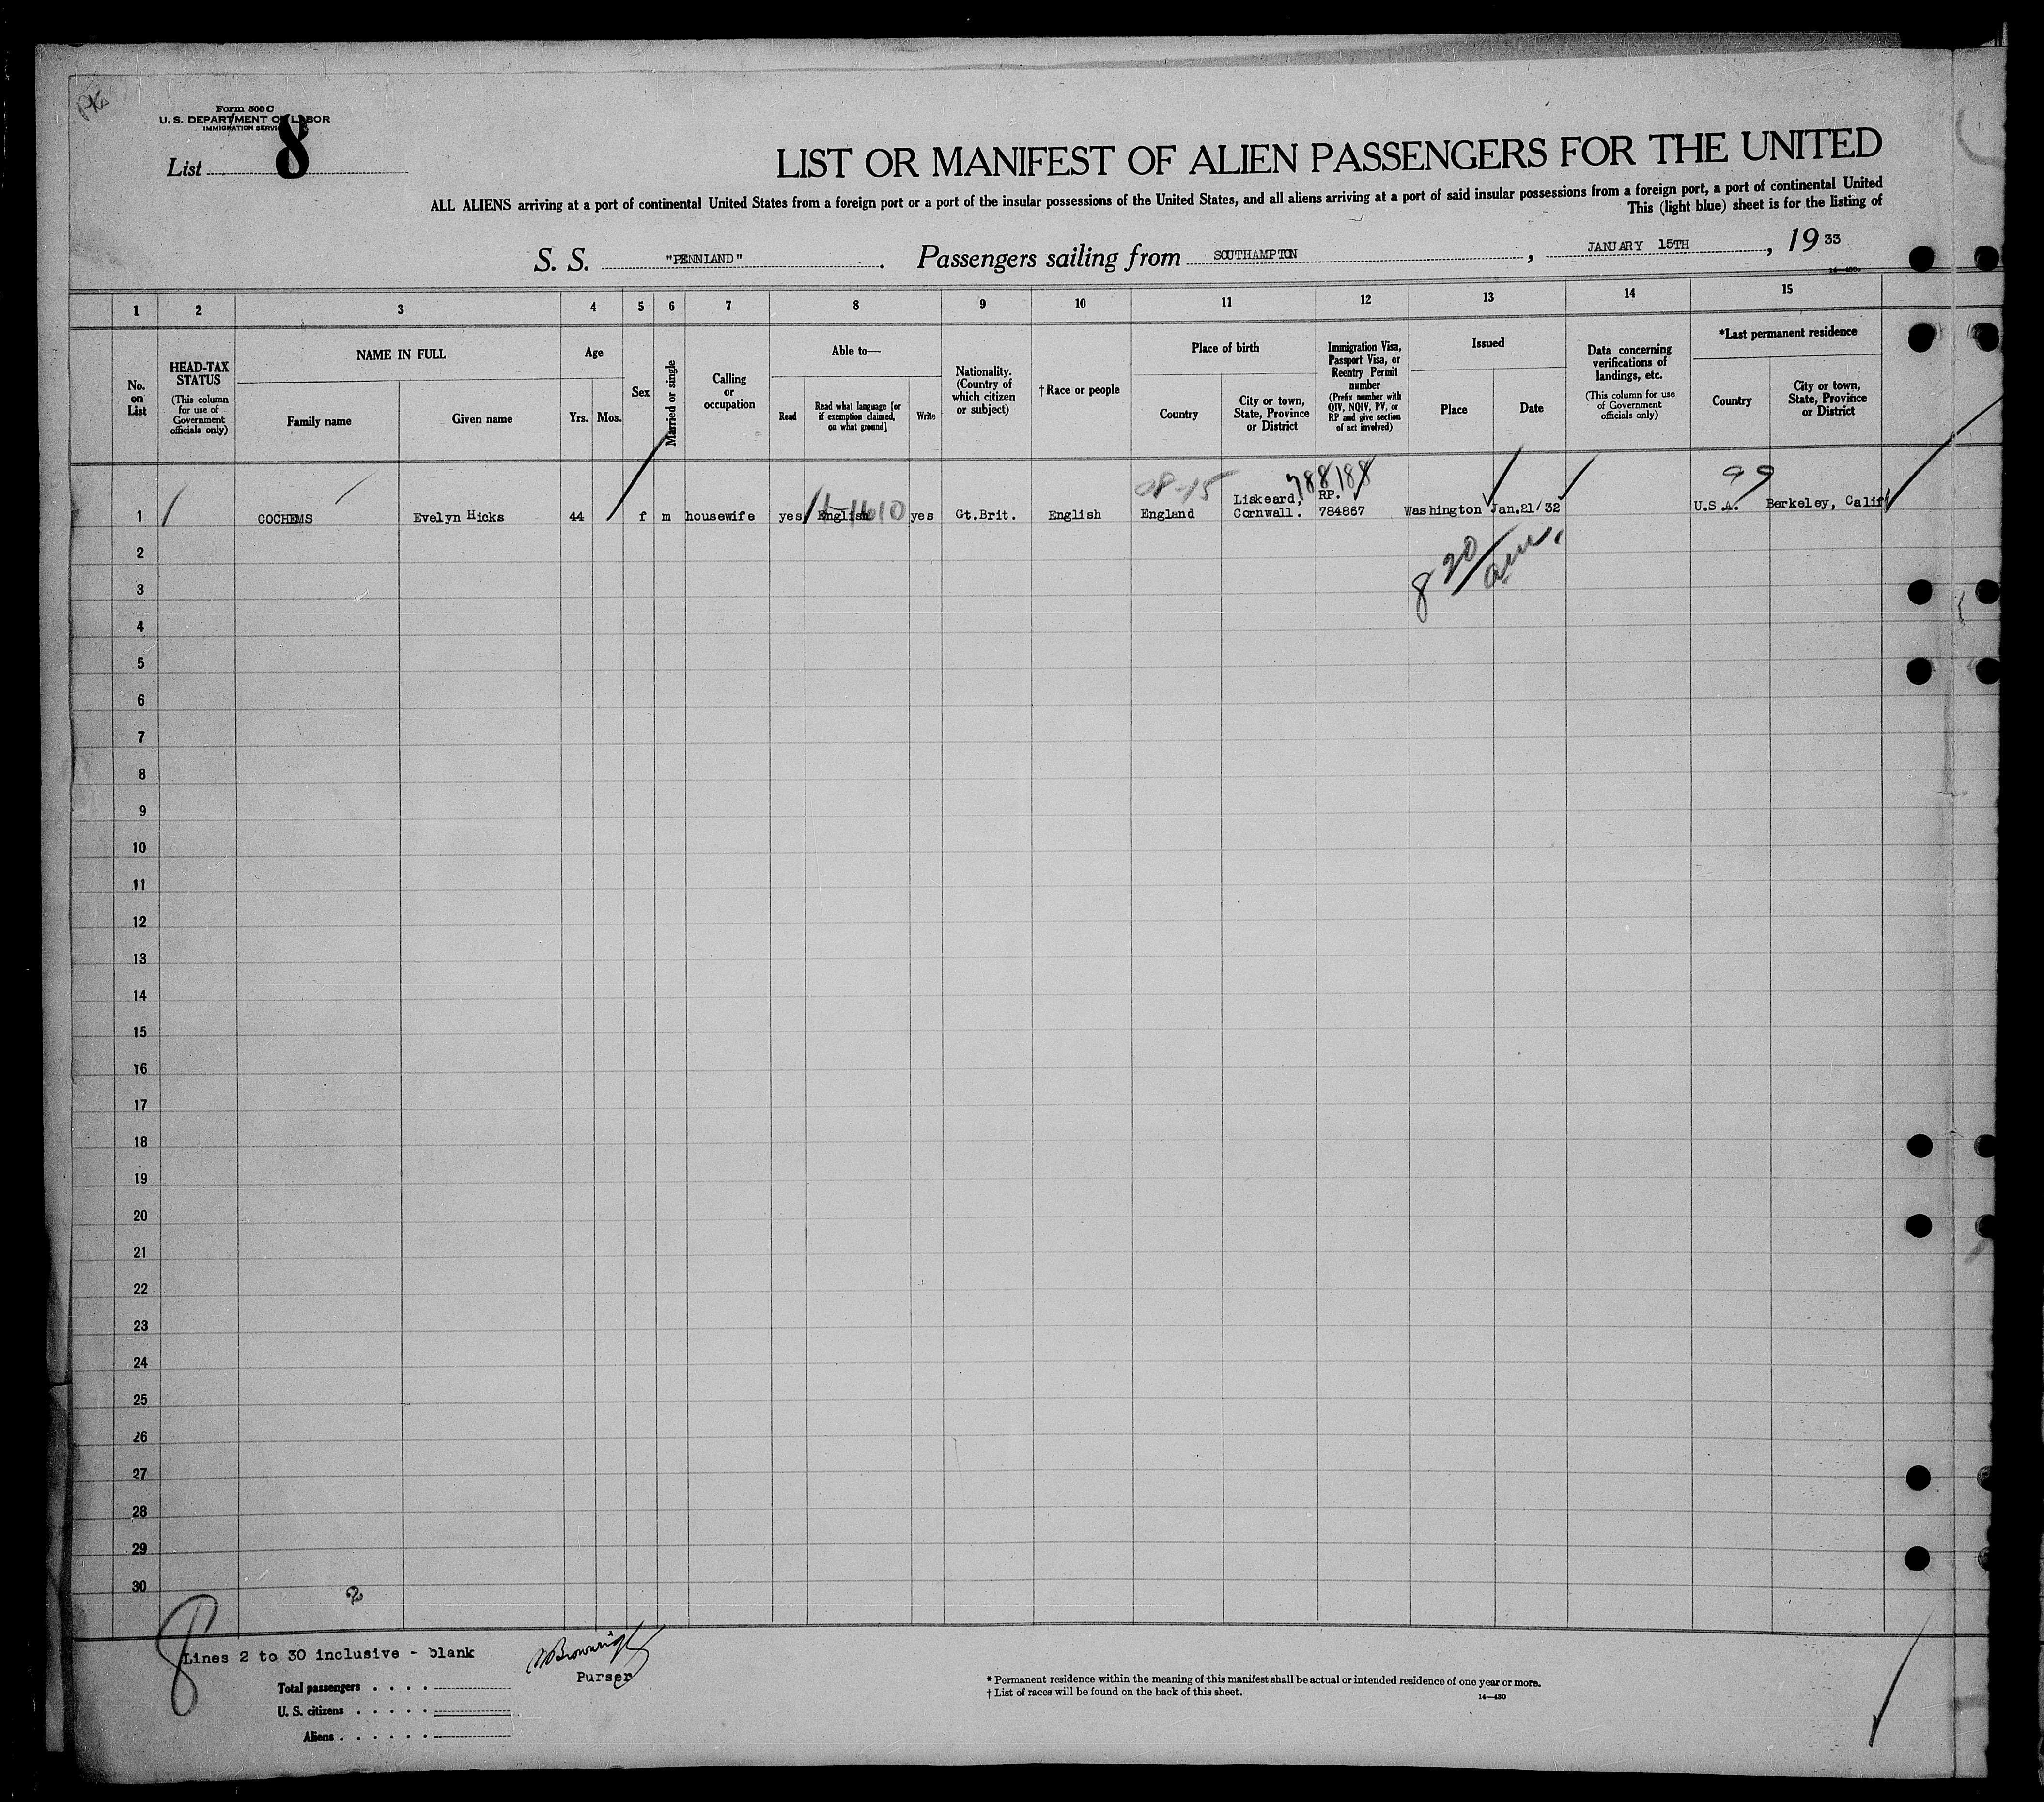 Form 500 C
U. S. DEPARTMENT OF LABOR
IMMIGRATION SERVICE
List 8
LIST OR MANIFEST OF ALIEN PASSENGERS FOR THE UNITED
ALL ALIENS arriving at a port of continental United States from a foreign port or a port of the insular possessions of the United States, and all aliens arriving at a port of said insular possessions from a foreign port, a port of continental United
This (light blue) sheet is for the listing of
S. S. "PENNLAND". Passengers sailing from SOUTHAMPTON, JANUARY 15TH, 19 33
1 2 3 4 5 6 7 8 9 10 11 12 13 14 15
No. on List
HEAD-TAX STATUS
(This column for use of Government officials only)
NAME IN FULL
Family name
Given name
Age
Yrs. Mos.
Sex
Married or single
Calling or occupation
Able to—
Read
Read what language [or if exemption claimed, on what ground]
Write
Nationality. (Country of which citizen or subject)
†Race or people
Place of birth
Country
City or town, State, Province or District
Immigration Visa, Passport Visa, or Reentry Permit number
(Prefix number with QIV, NQIV, PV, or RP and give section of act involved)
Issued
Place
Date
Data concerning verifications of landings, etc.
(This column for use of Government officials only)
*Last permanent residence
Country
City or town, State, Province or District
788188
99
1 COCHEMS Evelyn Hicks 44 f m housewife yes English yes Gt.Brit. English England Liskeard, Cornwall. RP. 784867 Washington Jan.21/32 U.S.A. Berkeley, Calif
8 20/am.
2
3
4
5
6
7
8
9
10
11
12
13
14
15
16
17
18
19
20
21
22
23
24
25
26
27
28
29
30
2
8
Lines 2 to 30 inclusive - blank
Purser
Total passengers . . . .
U. S. citizens . . . . .
Aliens . . . . . .
* Permanent residence within the meaning of this manifest shall be actual or intended residence of one year or more.
† List of races will be found on the back of this sheet.
14—430